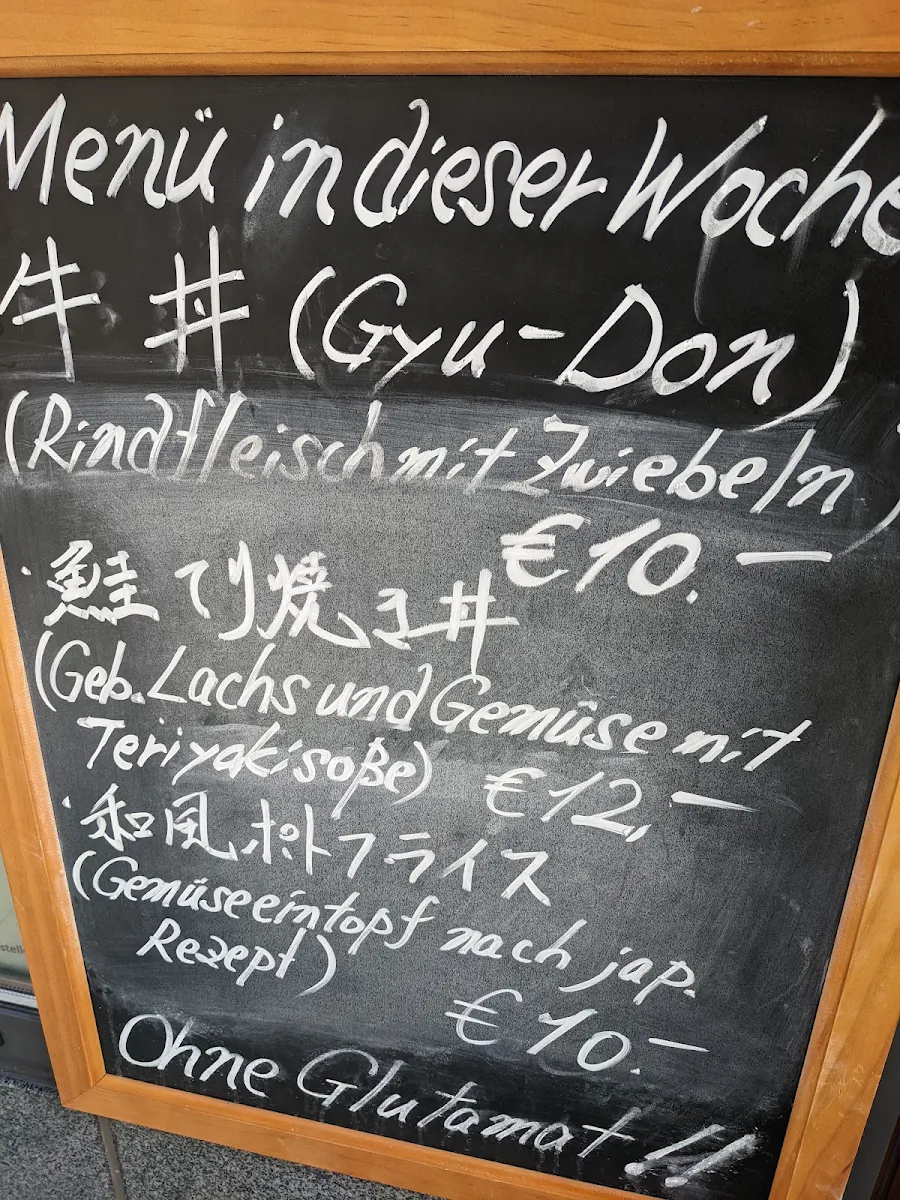 Menü in dieser Woche
牛 丼 (Gyu-Don)
(Rindfleisch mit Zwiebeln)
€10.-
・鮭てり焼き丼
(Geb. Lachs und Gemüse mit
Teriyakisoße) €12,-
・和風ポトフライス
(Gemüseeintopf nach jap.
Rezept)
€10.-
Ohne Glutamat!!